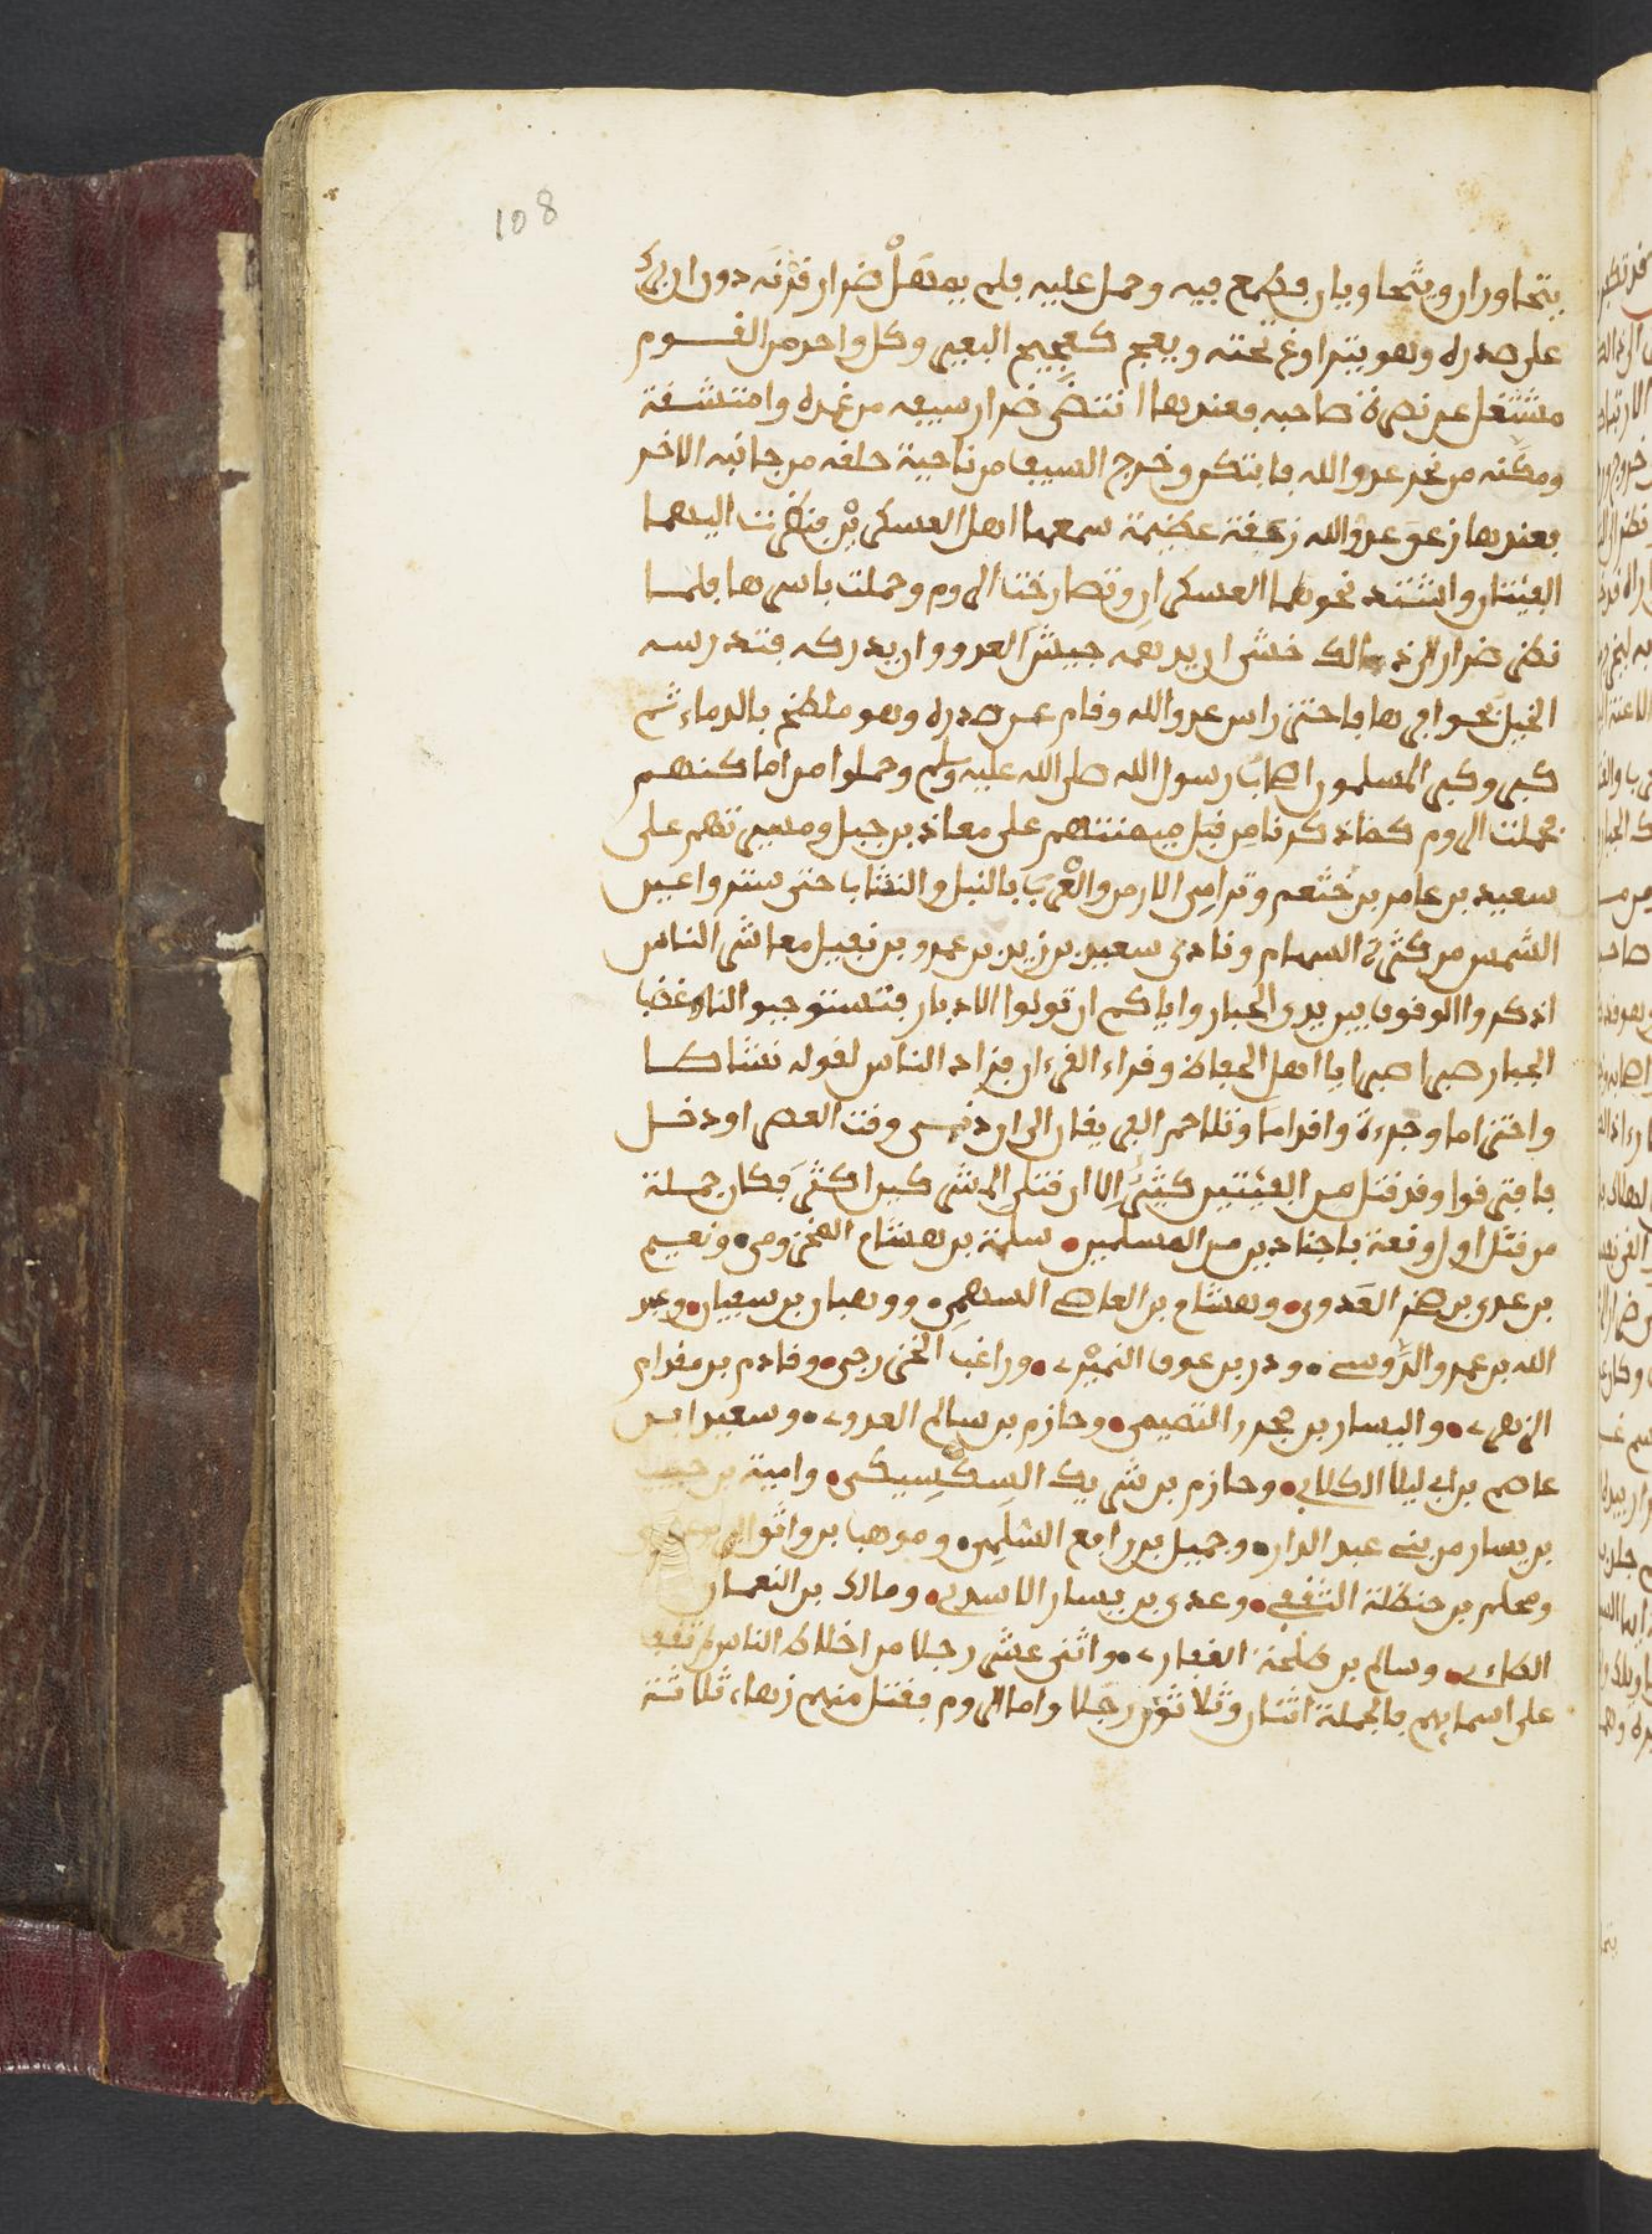 108
يتحاوران ويتجاوبان فطمع فيه وحمل عليه فلم يمهل ضرار قرنه دون ان برك
على صدره وهو يتراوغ تحته ويعج كعجيج البعير وكل واحد من القوم
مشتغل عن نصرة صاحبه فعندها انتضى ضرار سيفه من غمده وامتشقه
ومكنه من نحر عدو الله فابتكر وخرج السيف من ناحية حلقه من جانبه الاخر
فعندها زعق عدو الله زعقة عظيمة سمعها اهل العسكرين فنظرت اليهما
الفيتان واشتد نحوهما العسكران وتصارخت الروم وحملت باسرها فلما
نظر ضرار الى ذالك خشى ان يدهمه جيش العدو وان يدركه فتدرسه
الخيل بحوافرها فاحتز راس عدو الله وقام عن صدره وهو ملطخ بالدماء ثم
كبر وكبر المسلمون اصحاب رسول الله صلى الله عليه وسلم وحملوا من اماكنهم
فحملت الروم كما ذكرنا من قبل ميمنتهم على معاذ بن جبل وميسرتهم على
سعيد بن عامر بن خثعم وترامى الارمن والعرب بالنبل والنشاب حتى ستروا عين
الشمس من كثرة السهام ونادى سعيد بن زيد بن عمرو بن نفيل معاشر الناس
اذكروا الوقوف بين يدى الجبار واياكم ان تولوا الادبار فتستوجبوا النار وغضب
الجبار صبرا صبرا يا اهل الحفاظ وقراء القرءان فزاد الناس لقوله نشاطا
واحتراما وجرءة واقداما وتلاحم الفريقان الى ان دنى وقت العصر او دخل
فافترقوا وقد قتل من الفيتين كثير الا ان قتلى المشركين اكثر فكان جملة
من قتل اول وقعة باجنادين من المسلمين سلمة بن هشام المخزومى ونعيم
بن عدى بن صخر العدوى وهشام بن العاصى السهمى وهبار بن سفيان وعبد
الله بن عمرو الدوسى ودر بن عوف النميرى وراغب الخزرجى وقادم بن مقدام
الزهرى واليسار بن مجدر التميمى وحازم بن سالم العدوى وسعيد ابن
عاصم بن ابى ليلا الكلابى وحازم بن شريك السكسيكى وامية بن حبيب
بن يسار من بنى عبد الدار وجميل بن رافع السلمى وموهب بن واثق اليربوعى
ومحلم بن حنظلة الثقفى وعدى بن يسار الاسدى ومالك بن النعمان
الطاءى وسالم بن طلحة الغفارى واثنى عشر رجلا من اخلاط الناس لم نقف
على اسمايهم فالجملة اثنان وثلاثون رجلا واما الروم فقتل منهم زهاء ثلاثة